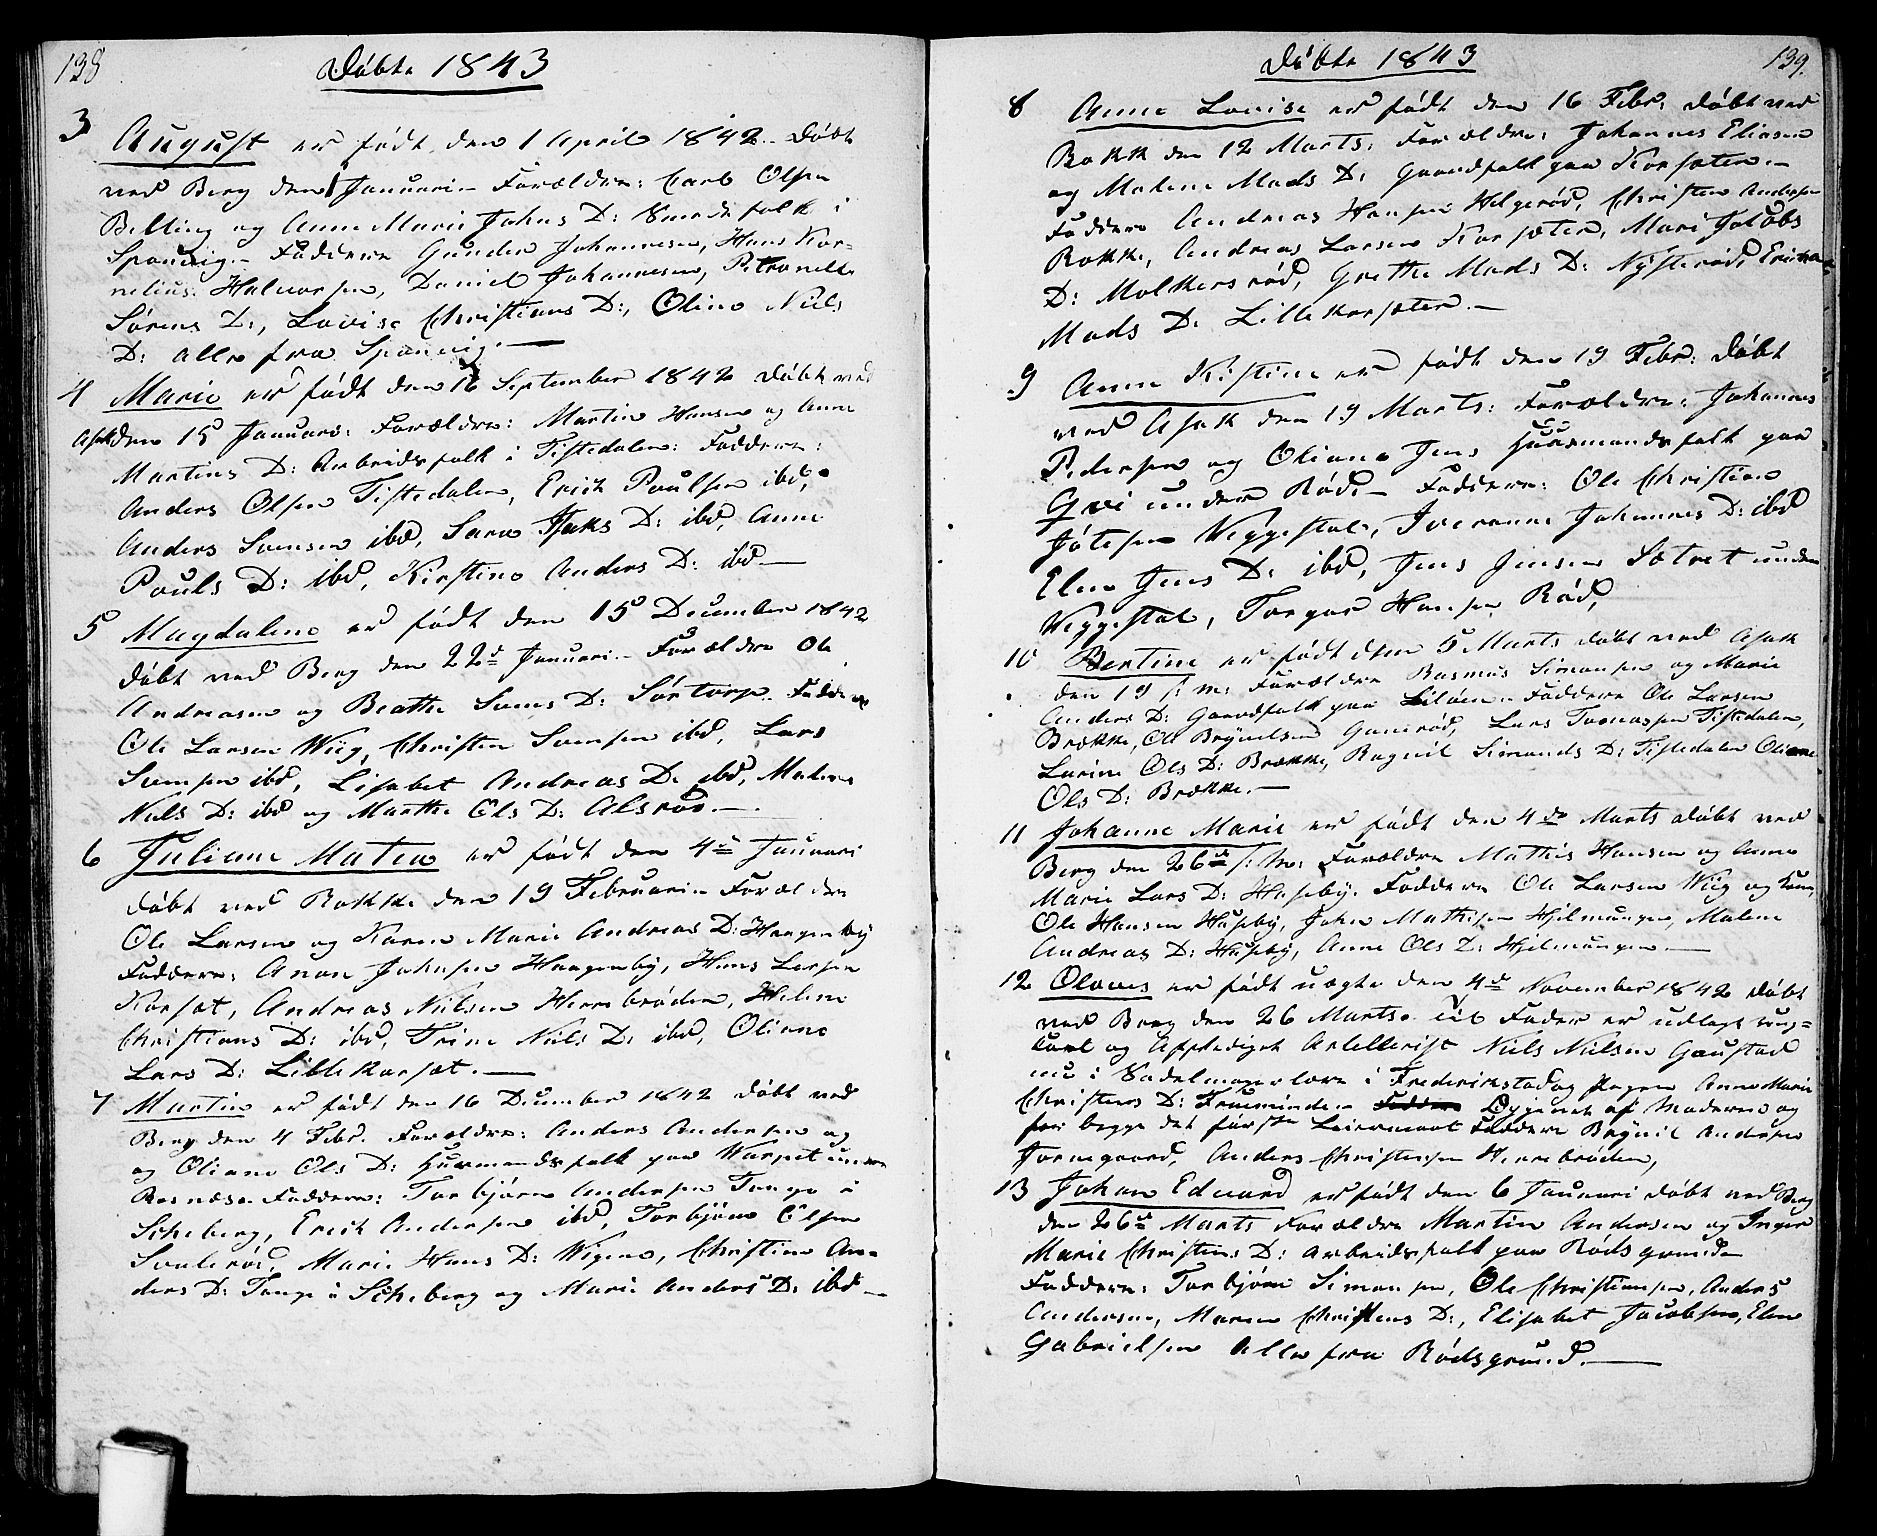 138
Døbte 1843
3 August er født den 1 April 1842. Døbt
ved Berg den 1 Januari. Forældre: Carl Olsen
Belling og Anne Marie Johns D: Smedefolk i
Sponvig. Faddere Gunder Johannesen, Hans Kor-
nelius Halvorsen, Daniel Johannesen, Petronelle
Sørens D:, Lovise Christians D:, Oline Niels
D: alle fra Sponvig.
4 Marie er født den 16 September 1842 Døbt ved
Asak den 15 Januari: Forældre: Martin Hansen og Anne
Martins D: Arbeidsfolk i Tistedalen: Faddere:
Anders Olsen Tistedalen, Erick Poulsen ibd,
Anders Svensen ibd, Sara Isaks D: ibd, Anne
Pouls D: ibd, Kirstine Anders D: ibd
5 Magdalene er født den 15 December 1842
døbt ved Berg den 22d Januari. Forældre Ole
Andreasen og Beathe Svens D: Sørtorp. Faddere
Ole Larsen Wiig, Christen Svensen ibd, Lars
Svensen ibd, Lisabet Andreas D: ibd, Malene
Niels D: ibd og Marthe Ols D: Alsrød.
6 Juliane Matea er født den 4de Januari
døbt ved Rokke den 19 Februari. Forældre
Ole Larsen og Karen Marie Andreas D: Haagenby
Faddere: Anon Johnsen Haagenby, Hans Larsen
Korsæt, Andreas Nielsen Herrebrøden, Helene
Christians D: ibd, Trine Niels D: ibd, Oliane
Lars D: Lillekorsæt.
7 Martin er født den 16 December 1842 døbt ved
Berg den 4 Febr. Forældre: Anders Andersen og
og Oliane Ols D: Huusmandsfolk paa Warpet under
Rosnæs. Faddere: Torbjørn Andersen Tange i
Scheberg, Erick Andersen ibd, Torbjørn Olsen
Soulerød, Marie Hans D: Wigene, Christine An-
ders D: Tange i Scheberg og Marie Anders D: ibd
139.
Døbte 1843
8 Anne Lovise er født den 16 Febr: døbt ved
Rokke den 12 Marts: Forældre: Johannes Eliasen
og Malene Mads D: Gaardfolk paa Korsæter.
Faddere Andreas Hansen Helgerød, Christen Andersen
Rokke, Andreas Larsen Korsæter, Mari Jakobs
D: Molkersrød, Grethe Mads D: Nysterød,
Mads D: Lillekorsæter.
9 Anne Kistine er født den 19 Febr: døbt
ved Asak den 19 Marts: Forældre: Johannes
Pedersen og Oliane Jens Huusmandsfolk paa
Qvi under Rød. Faddere: Ole Christian
Jølesen Veggestøl, Iveranne Johannes D: ibd
Elen Jens D: ibd, Jens Jensen Sætret under
Veggestøl, Torger Hansen Rød,
10 Bertine er født den 5 Marts døbt ved Asak
den 19 s: m: Forældre Rasmus Simonsen og Marie
Anders D: Gaardfolk paa Liløen. Faddere Ole Larsen
Brække, Ole Brynildsen Gamrød, Lars Tomassen Tistedalen,
Larine Ols D: Brække, Ragnil Simons D: Tistedalen Oliane
Ols D: Brække.
11 Johanne Marie er født den 4de Marts døbt ved
Berg den 26de s: m: Forældre Mathis Hansen og Anne
Marie Lars D: Huseby. Faddere Ole Larsen Wiig og Kone,
Ole Hansen Huseby, John Mathisen Hjelmungen, Malene
Andreas D: Huseby, Anne Ols D: Hjelmungen
12 Olaves er født uægte den 4de November 1842 døbt
ved Berg den 26 Marts. til Fader er udlagt ung-
karl og Artellerist Niels Nielsen Gaustad
nu i Sadelmagerlære i Frederikstad og Pigen Anne Marie
Christens D: Opgivet af Moderen og
for begge det første Leiermaal Faddere Brynil Andersen
Tornegaard, Anders Christensen Herrebrøden,
13 Johan Eduard er født den 6 Januari døbt ved Berg
den 26de Marts Forældre Martin Andersen og Inger
Marie Christens D: Arbeidsfolk paa Rødsgrund
Faddere: Torbjørn Simonsen, Ole Christiansen, Anders
Andersen, Maren Christens D:, Elisabet Jacobsen, Elen
Gabrielsen Alle fra Rødsgrund.